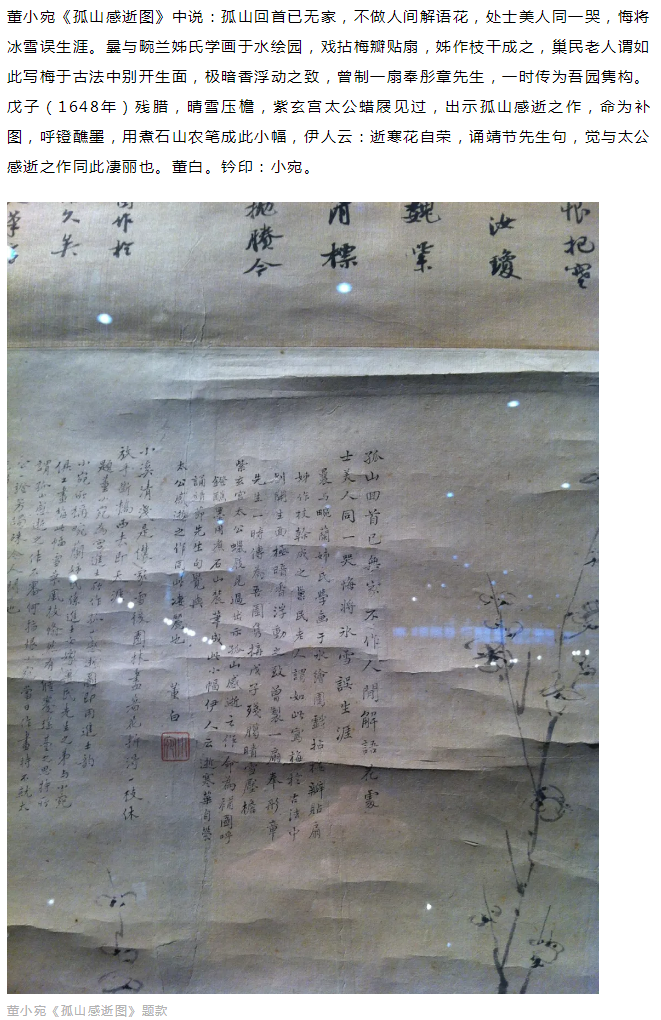 董小宛《孤山感逝图》中说：孤山回首已无家，不做人间解语花，处士美人同一哭，悔将
冰雪误生涯。曩与畹兰姊氏学画于水绘园，戏拈梅瓣贴扇，姊作枝干成之，巢民老人谓如
此写梅于古法中别开生面，极暗香浮动之致，曾制一扇奉彤章先生，一时传为吾园隽构。
戊子（1648年）残腊，晴雪压檐，紫玄宫太公蜡屐见过，出示孤山感逝之作，命为补
图，呼镫醮墨，用煮石山农笔成此小幅，伊人云：逝寒花自荣，诵靖节先生句，觉与太公
感逝之作同此凄丽也。董白。钤印：小宛。
恨把
汝瓊
標
賸今
作於
久矣
孤山回首已無家不作人間解語花處
士美人同一哭悔將冰雪誤生涯
曩与畹蘭姊氏學画于水繪園戲拈梅瓣貼扇
姊作枝幹成之巢民老人謂如此寫梅於古法中
別開生面極暗香浮動之致曾製一扇奉彤章
先生一時傳為吾園雋搆戊子殘臘晴雪壓檐
紫玄宮太公蠟屐見過出示孤山感逝之作命為補圖呼
鐙醮墨用煮石山農筆成此小幅伊人云逝寒華自榮
誦靖節先生句覺與
太公感逝之作同此凄麗也
董白
小溪清淺是僊家雪後園林
一枝休
放手斷橋西去即天涯
董小宛《孤山感逝图》题款